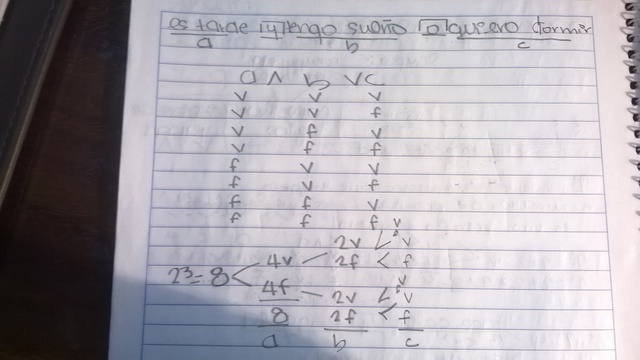 es tarde y tengo sueño o quiero dormir
a b c
a ∧ b ∨ c
v v v
v v f
v f v
v f f
f v v
f v f
f f v
f f f v
2v < v
4v — 2f < f
2³=8 < v
4f — 2v < v
8 2f < f
a b c